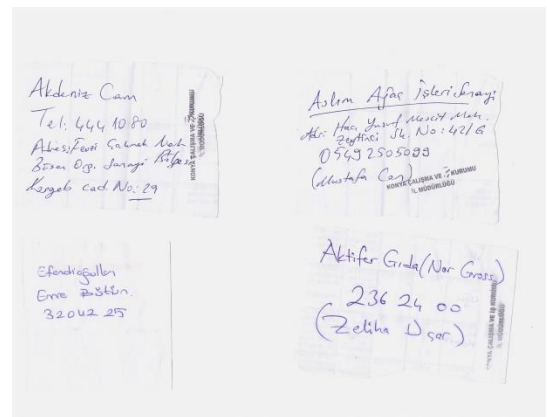 Akdeniz Cam
Tel: 444 10 80
Adres: Fevzi Çakmak Mah
Büsan Org. Sanayi Bölgesi
Kosgeb cad No: 29
KONYA ÇALIŞMA VE İŞ KURUMU
İL MÜDÜRLÜĞÜ
Aslım Ağaç İşleri Sanayi
Adr: Hacı Yusuf Mescit Mah.
Zeytinci Sk. No: 42/G
0549 2505099
(Mustafa Can)
KONYA ÇALIŞMA VE İŞ KURUMU
İL MÜDÜRLÜĞÜ
Efendioğulları
Emre
320 42 25
Aktifer Gıda (Nar Gross)
236 24 00
(Zeliha)
KONYA ÇALIŞMA VE İŞ KURUMU
İL MÜDÜRLÜĞÜ